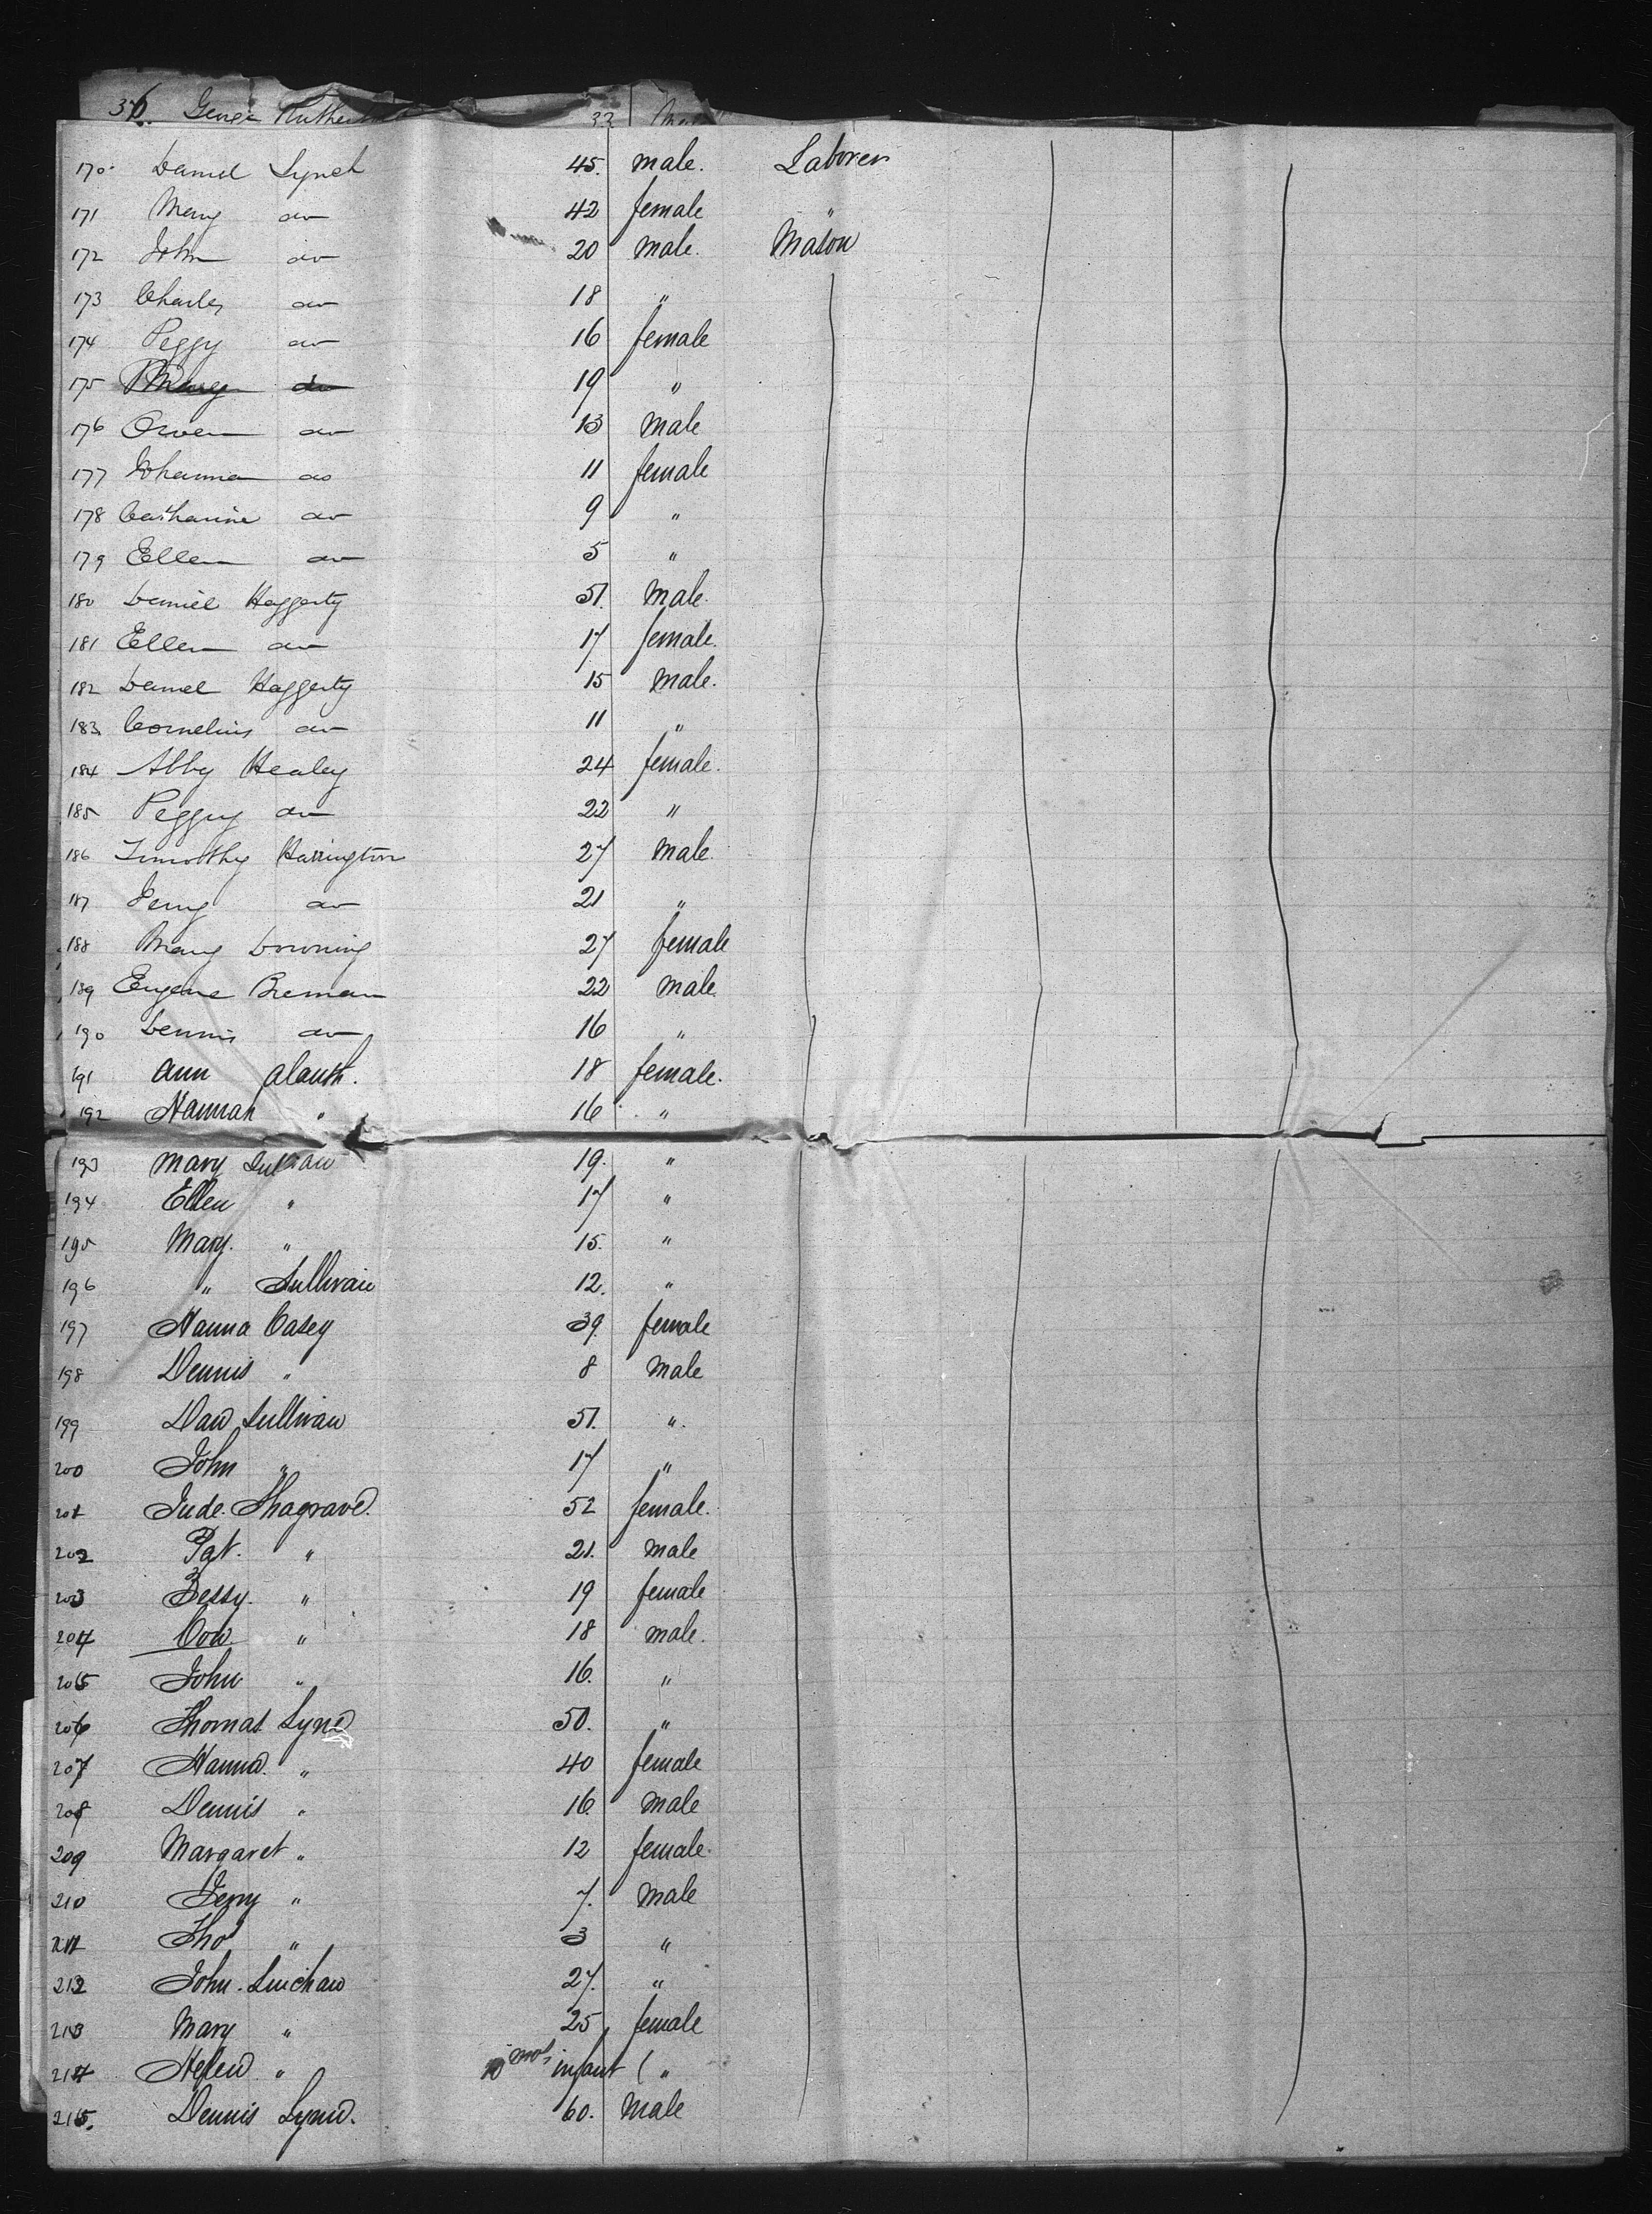 36. George
33
170 Daniel Lynch 45. male. Laborer
171 Mary do 42 female "
172 John do 20 male. Mason
173 Charles do 18 "
174 Peggy do 16 female
175 Mary do 19 "
176 Owen do 13 male
177 Johanna do 11 female
178 Catharine do 9 "
179 Ellen do 5 "
180 Daniel Haggerty 51. male.
181 Ellen do 17 female.
182 Daniel Haggerty 15 male.
183 Cornelius do 11 "
184 Abby Healey 24 female.
185 Peggy do 22 "
186 Timothy Harrington 27 male.
187 Jerry do 21 "
188 Mary Downing 27 female
189 Eugene 22 male
190 Dennis do 16 "
191 Ann 18 female.
192 Hannah " 16 "
193 Mary 19. "
194 Ellen " 17 "
195 Mary. " 15. "
196 " Sullivan 12. "
197 Hanna Casey 39. female
198 Dennis " 8 male
199 Dan Sullivan 51. ".
200 John " 17 "
201 Jude. 52 female.
202 Pat. " 21. male
203 Bessy. " 19 female
204 Con " 18 male.
205 John " 16. "
206 Thomas Lyne 50. "
207 Hanna. " 40 female
208 Dennis " 16. male
209 Margaret " 12 female.
210 Jerry " 7. male
211 Tho " 3 "
212 John. 27. "
213 Mary " 25 female
214 Helen " 10 mos infant ( "
215. Dennis 60. male